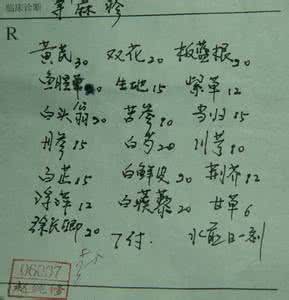 临床诊断 荨麻疹
R
黄芪30 双花20 板蓝根30
鱼腥草30 生地15 紫草12
白头翁20 苦参10 当归15
丹参15 白芍20 川芎10
白芷15 白鲜皮30 荆芥12
浮萍12 白蒺藜20 甘草6
徐长卿20
7付 水煎日一剂
06037